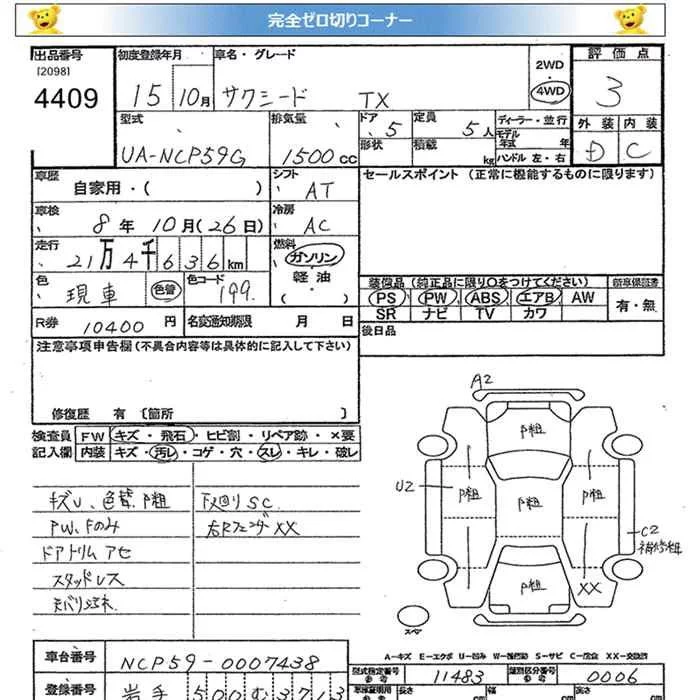 完全ゼロ切りコーナー
出品番号 初度登録年月 車名・グレード 2WD・4WD 評価点
[2098]
4409 15 10月 サクシード TX 3
型式 排気量 ドア 5 定員 5人 ディーラー・並行 外装 内装
モデル年式 年
UA-NCP59G 1500cc 形状 積載 kg ハンドル 左・右 D C
車歴 自家用・( ) シフト AT セールスポイント (正常に機能するものに限ります)
車検 8年 10月(26日) 冷房 AC
走行 21万4千636km 燃料 ガソリン 軽油 ( )
色 現車 色替 色コード 199
装備品 (純正品に限り○をつけてください) 新車保証書
PS PW ABS エアB AW 有・無
SR ナビ TV カワ
R券 10400円 名変通知期限 月 日 後日品
注意事項申告欄(不具合内容等は具体的に記入して下さい)
修復歴 有 〔箇所 〕
検査員記入欄 FW キズ・飛石・ヒビ割・リペア跡・×要
内装 キズ・汚レ・コゲ・穴・スレ・キレ・破レ
キズU、色替、P粗 下回りSC
PW、Fのみ 右Rフェンダー XX
ドアトリム アセ
スタッドレス
A2
P粗
U2 P粗 P粗 P粗
C2
補修粗
P粗 XX
スペア
A-キズ E-エクボ U-凹み W-補修跡 S-サビ C-腐食 XX-交換済
車台番号 NCP59-0007438
型式指定番号 11483 類別区分番号 0006
登録番号 岩手 500 む 3713
長さ cm 幅 cm 高さ cm